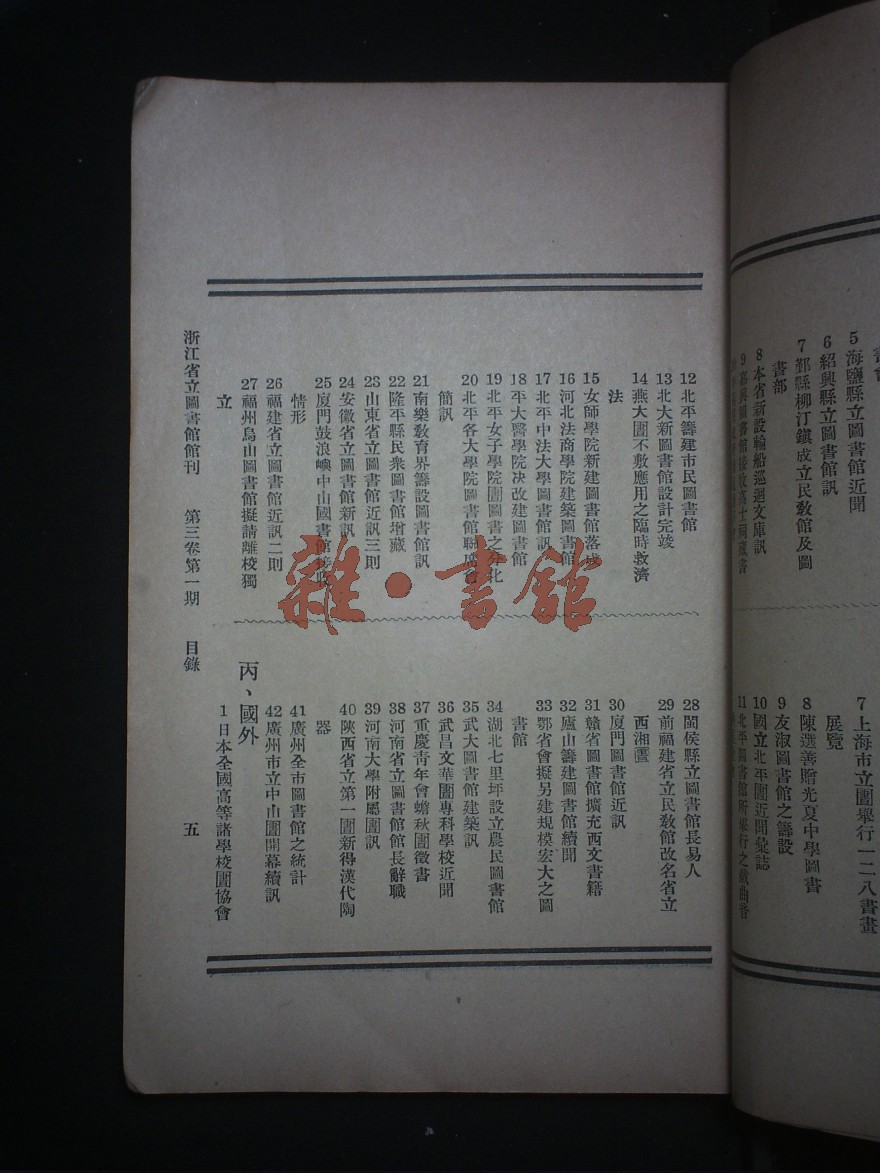 書部
5 海鹽縣立圖書館近聞
6 紹興縣立圖書館訊
7 鄞縣柳汀鎮成立民教館及圖
書部
8 本省新設輪船巡迴文庫訊
9 嘉興圖書館接收高士祠藏書
7 上海市立圕舉行一二八書畫
展覽
8 陳選善贈光夏中學圖書
9 友淑圖書館之籌設
10 國立北平圕近聞彙誌
11 北平圖書館所舉行之戲曲音
12 北平籌建市民圖書館
13 北大新圖書館設計完竣
14 燕大圕不敷應用之臨時救濟
法
15 女師學院新建圖書館落成
16 河北法商學院建築圖書館
17 北平中法大學圖書館訊
18 平大醫學院决改建圖書館
19 北平女子學院圕圖書之分化
20 北平各大學院圖書館聯
簡訊
21 南樂教育界籌設圖書館訊
22 隆平縣民衆圖書館增藏
23 山東省立圖書館近訊三則
24 安徽省立圖書館新訊
25 廈門鼓浪嶼中山圖書館接收
情形
26 福建省立圖書館近訊二則
27 福州烏山圖書館擬請離校獨
立
28 閩侯縣立圖書館長易人
29 前福建省立民教館改名省立
西湖圕
30 廈門圖書館近訊
31 贛省圖書館擴充西文書籍
32 廬山籌建圖書館續聞
33 鄂省會擬另建規模宏大之圖
書館
34 湖北七里坪設立農民圖書館
35 武大圖書館建築訊
36 武昌文華圕專科學校近聞
37 重慶青年會蟾秋圕徵書
38 河南省立圖書館館長辭職
39 河南大學附屬圕訊
40 陝西省立第一圕新得漢代陶
器
41 廣州全市圖書館之統計
42 廣州市立中山圕開幕續訊
丙、國外
1 日本全國高等諸學校圕協會
浙江省立圖書館館刊 第三卷第一期 目錄 五
雜·書館